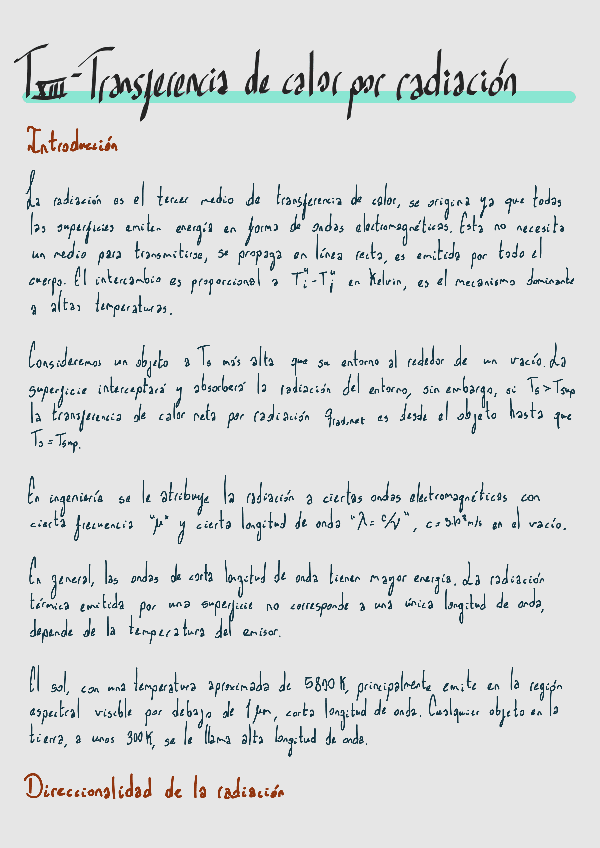 T_XIII - Transferencia de calor por radiación
Introducción
La radiación es el tercer medio de transferencia de calor, se origina ya que todas
las superficies emiten energía en forma de ondas electromagnéticas. Esta no necesita
un medio para transmitirse, se propaga en línea recta, es emitida por todo el
cuerpo. El intercambio es proporcional a Tᵢ⁴-Tⱼ⁴ en Kelvin, es el mecanismo dominante
a altas temperaturas.
Consideremos un objeto a Ts más alta que su entorno al rededor de un vacío. La
superficie interceptará y absorberá la radiación del entorno, sin embargo, si Ts > Tsup
la transferencia de calor neta por radiación q_rad,net es desde el objeto hasta que
Ts = Tsup.
En ingeniería se le atribuye la radiación a ciertas ondas electromagnéticas con
cierta frecuencia "μ" y cierta longitud de onda "λ = c/ν", c = 3·10⁸ m/s en el vacío.
En general, las ondas de corta longitud de onda tienen mayor energía. La radiación
térmica emitida por una superficie no corresponde a una única longitud de onda,
depende de la temperatura del emisor.
El sol, con una temperatura aproximada de 5800 K, principalmente emite en la región
espectral visible por debajo de 1 μm, corta longitud de onda. Cualquier objeto en la
tierra, a unos 300 K, se le llama alta longitud de onda.
Direccionalidad de la radiación